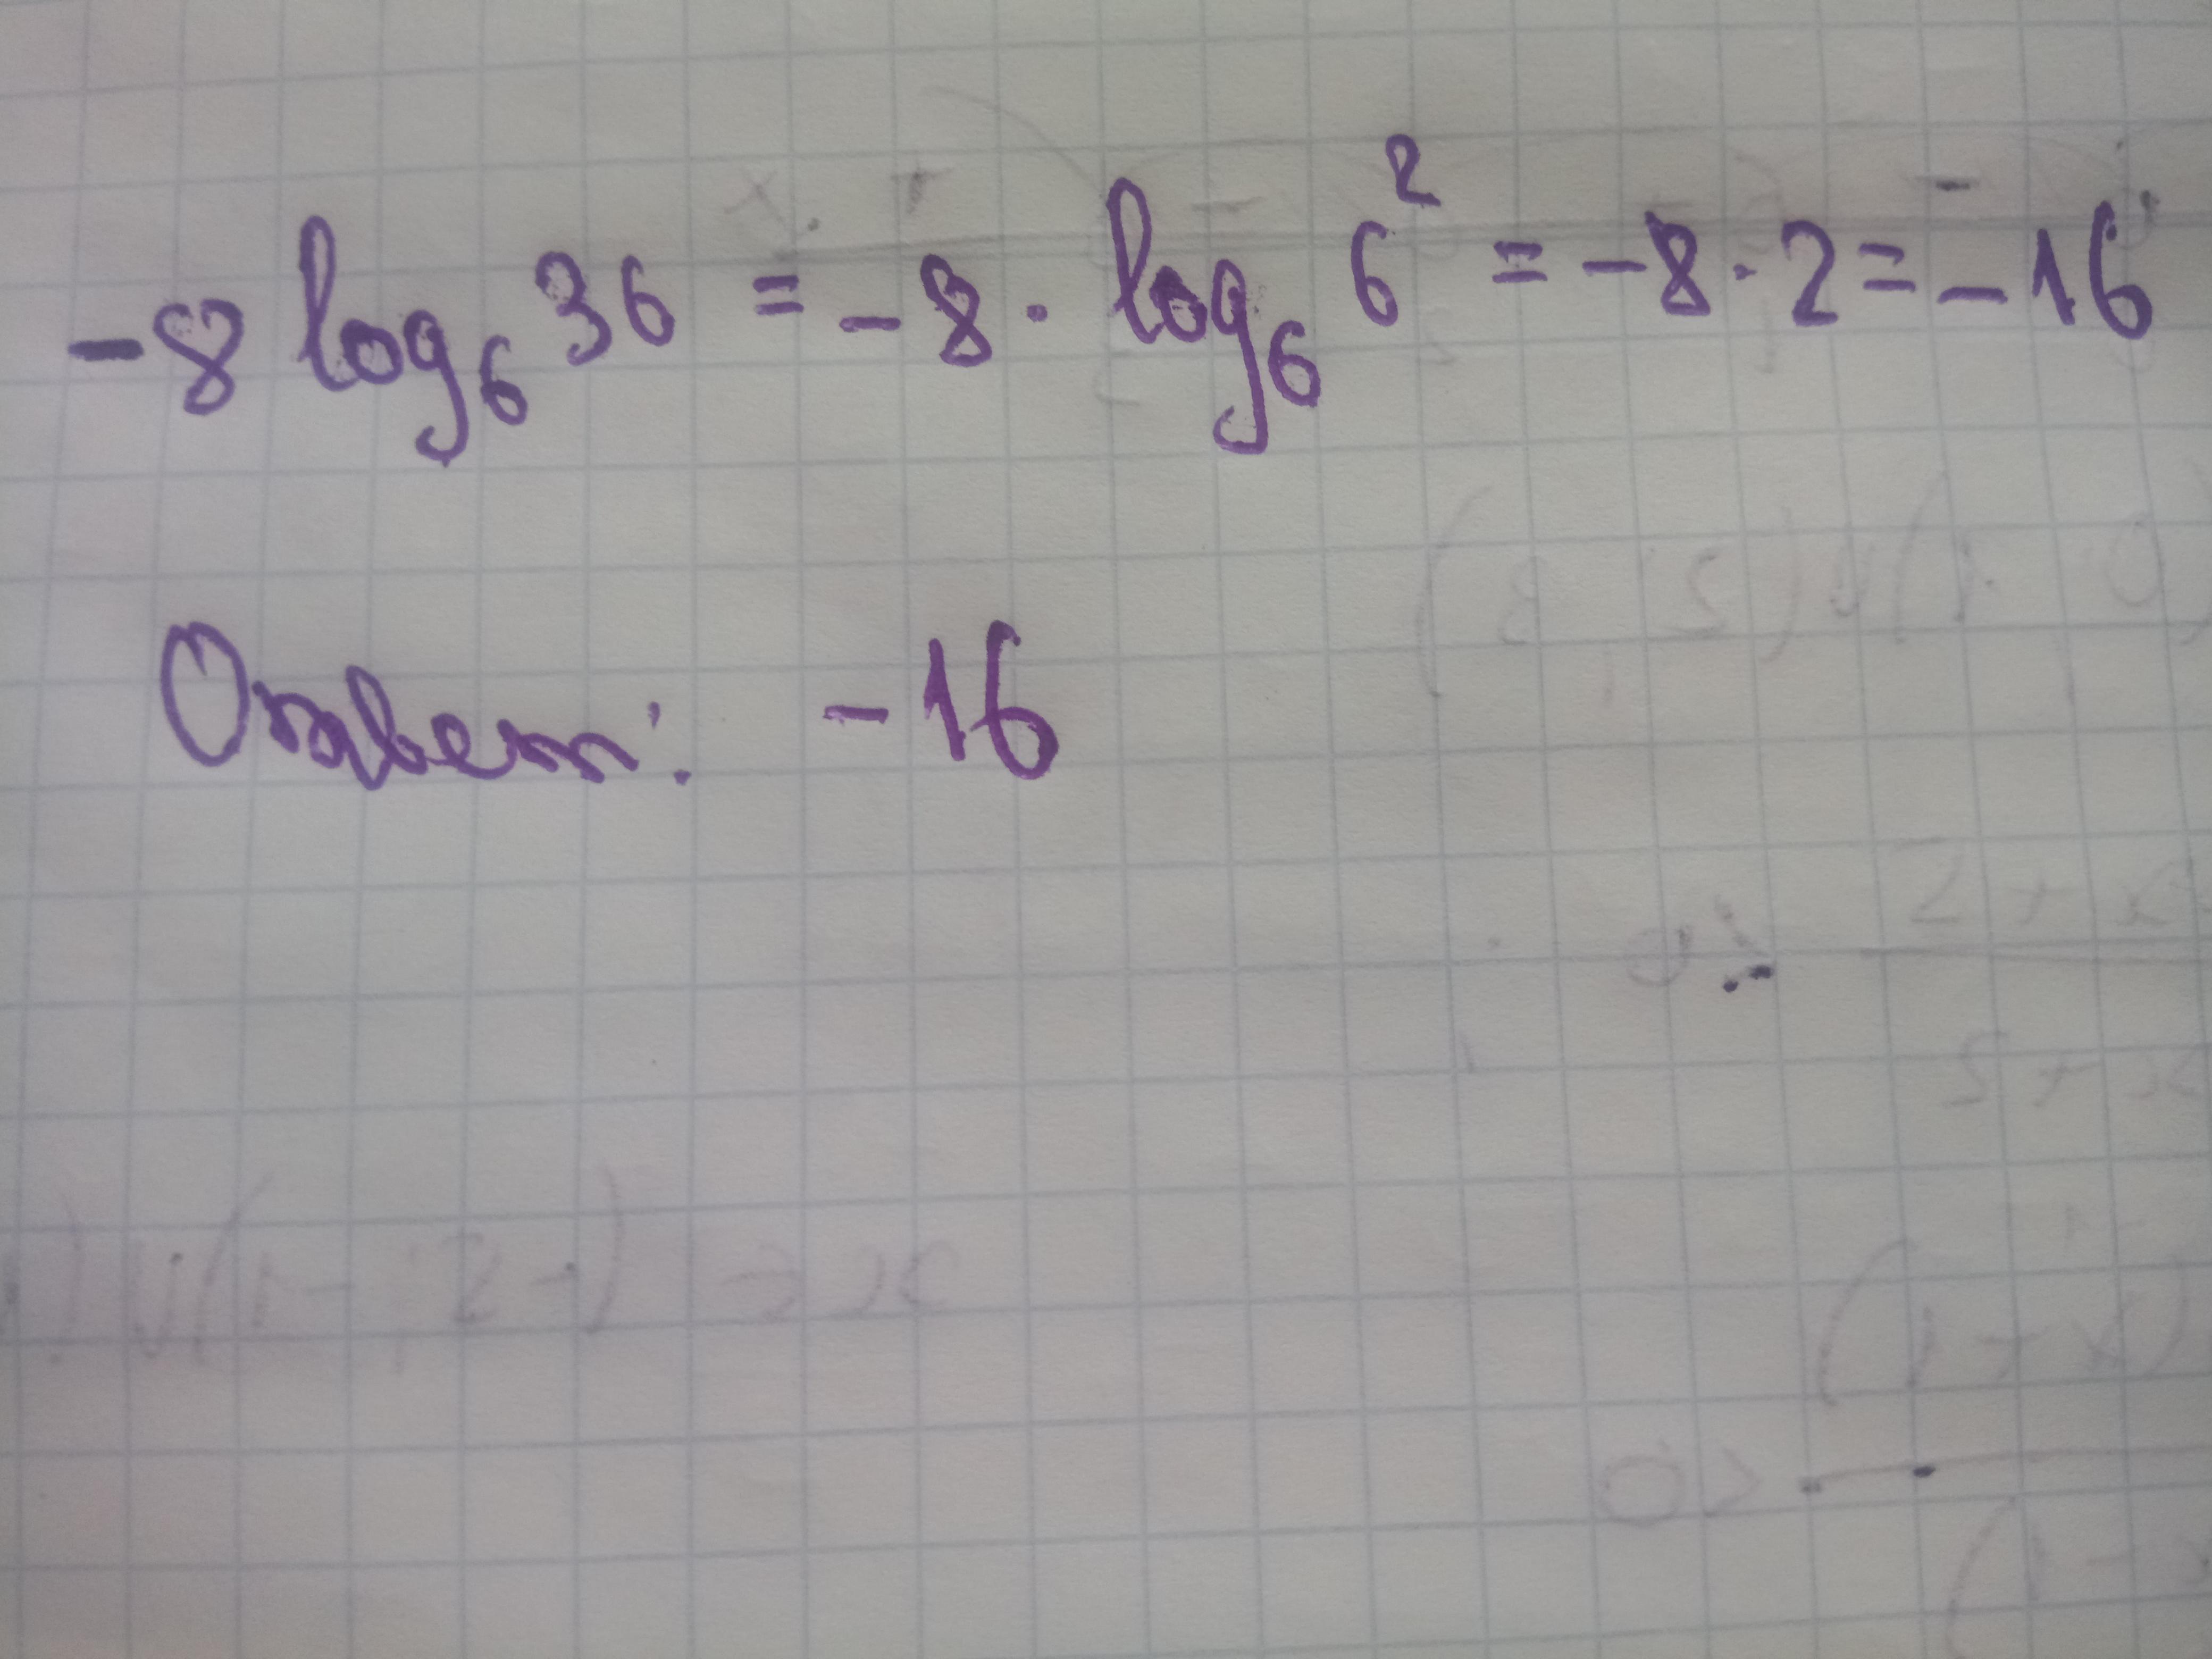 -8 log₆ 36 = -8 · log₆ 6² = -8 · 2 = -16
Ответ: -16